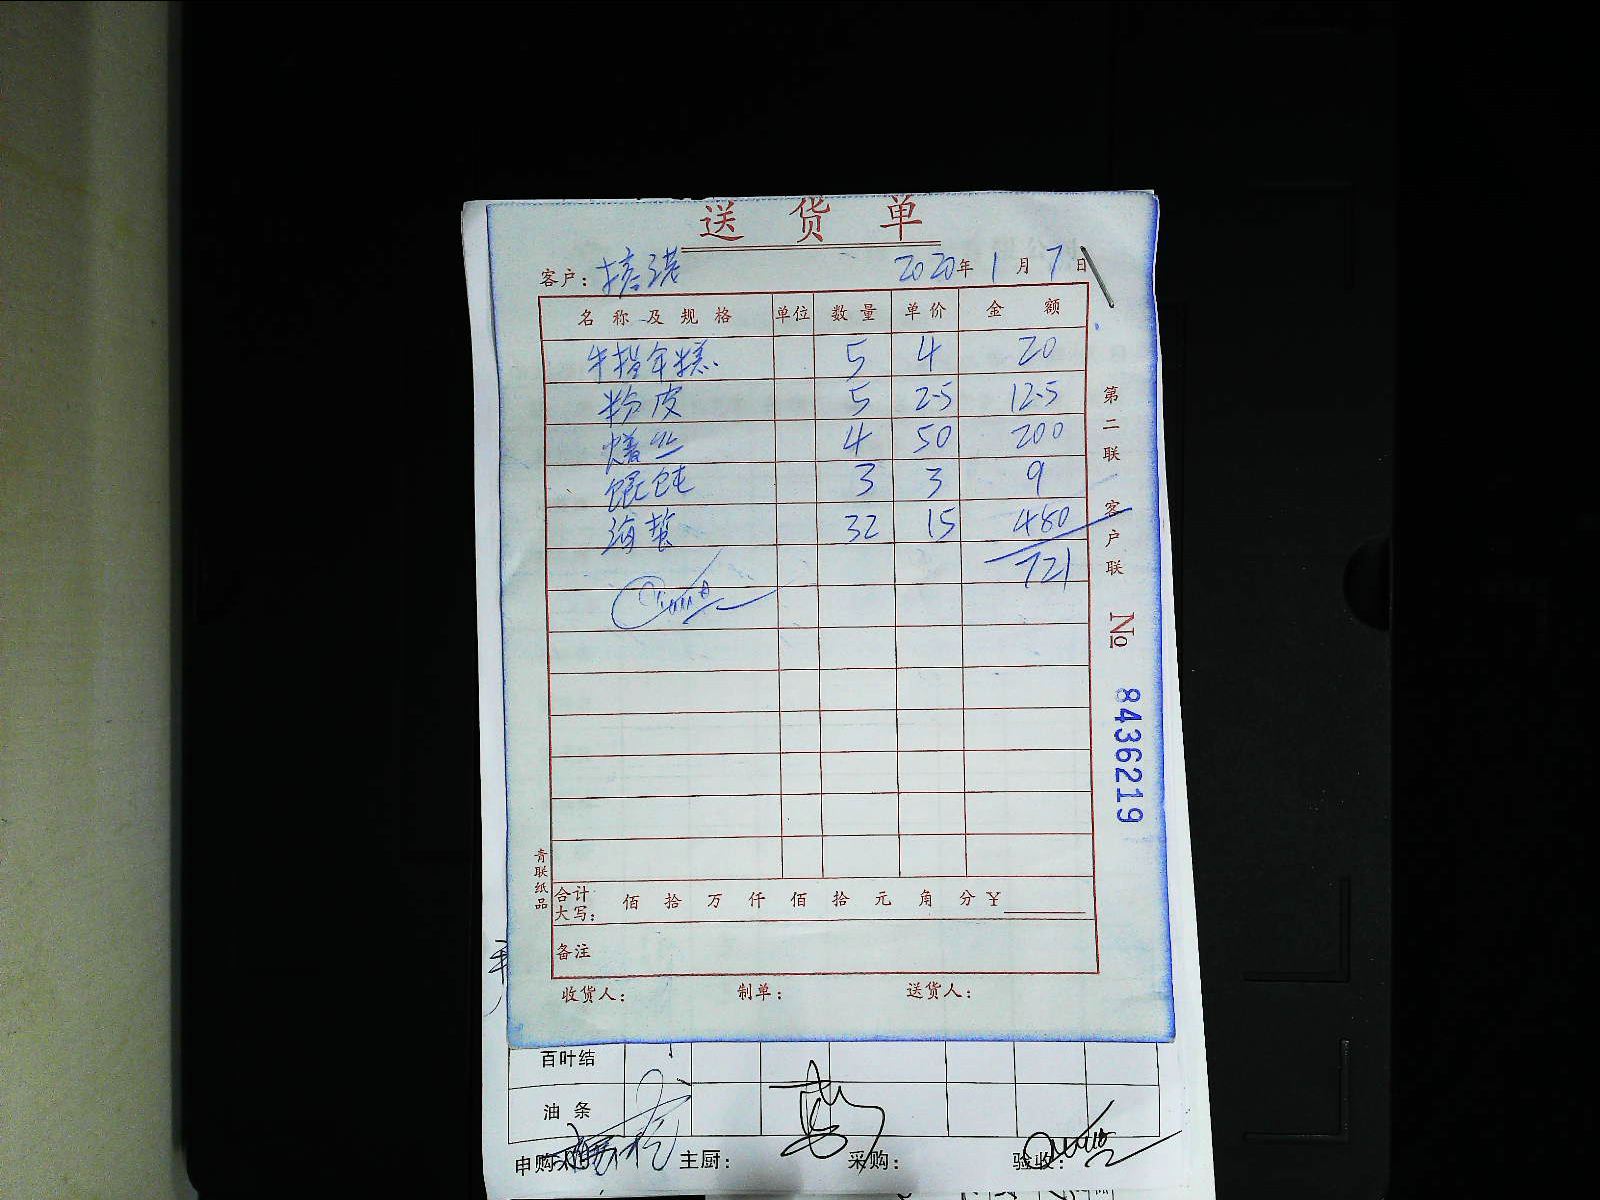 送货单
客户: 2020年1月7日
名称及规格 单位 数量 单价 金额
手指年糕 5 4 20
粉皮 5 2.5 12.5
丝 4 50 200
馄饨 3 3 9
海蜇 32 15 480
721
第二联 客户联
No 8436219
青联纸品
合计大写: 佰 拾 万 仟 佰 拾 元 角 分 ¥
备注
收货人: 制单: 送货人:
百叶结
油条
申购人 主厨: 采购: 验收: